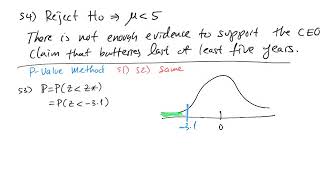 S4) Reject Ho ⇒ μ < 5
There is not enough evidence to support the CEO
claim that batteries last at least five years.
P-Value Method S1) S2) same
S3) P = P(Z < Z*)
= P(Z < -3.1)
-3.1 0